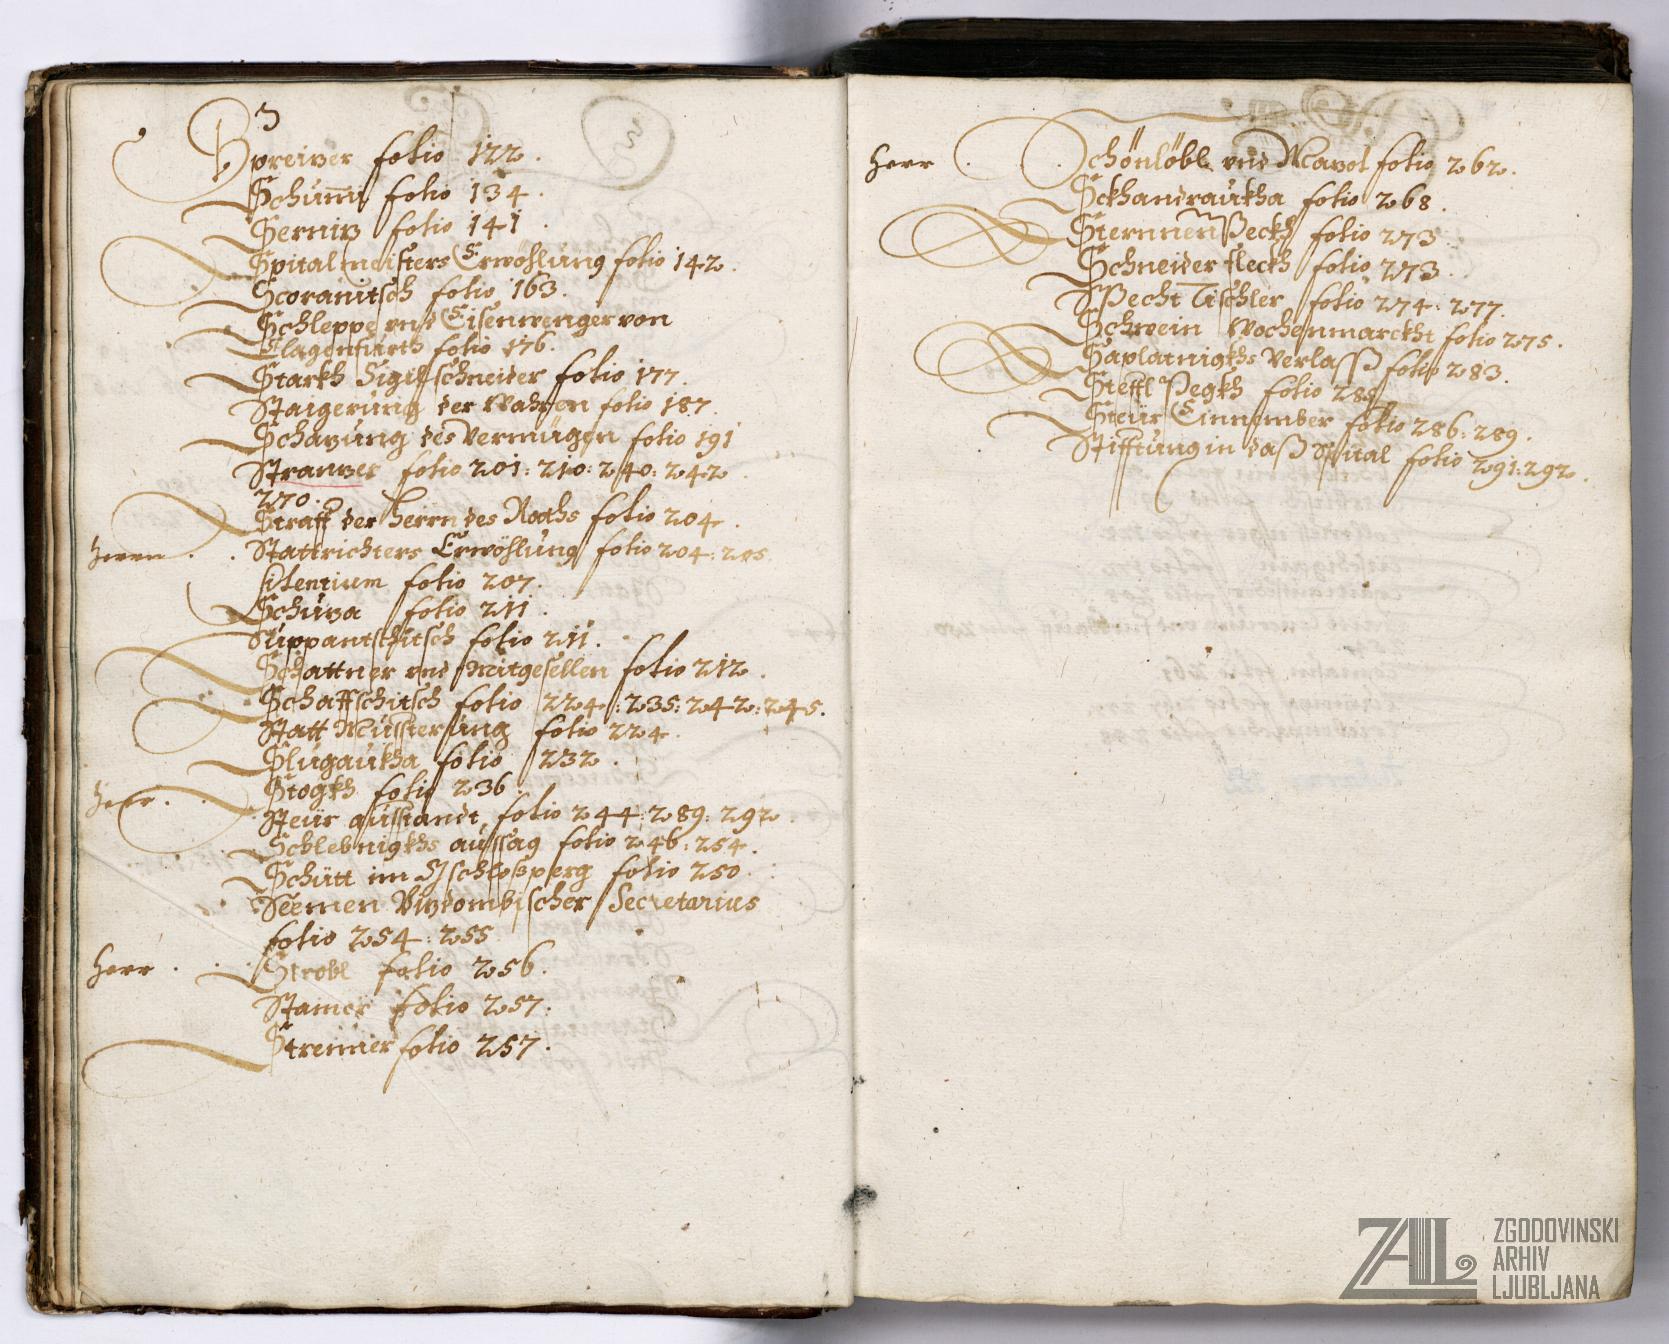 Spreizer folio 122.
Schumi folio 134.
Serniz folio 141.
Spitalmeisters Erwöhlung folio 142.
Scoranitsch folio 163.
Schleppe und Eisenwenger von
Clagenfurth folio 176.
Starkh Siglschneider folio 177.
Staigerung der Wahren folio 187.
Schazung des Vermügen folio 191
Stranzer folio 201: 210: 240: 242
270.
Straff der Herrn des Raths folio 204.
Herrn . . Stattrichters Erwöhlung folio 204: 205
silentium folio 207.
Schuza folio 211.
Suppantschitsch folio 211.
Schattner und Mitgesellen folio 212.
Schaffschitsch folio 224: 235: 242: 245.
Statt Müssterung folio 224.
Slugaukha folio 232.
Herr . . Stogkh folio 236
Steür ausstandt folio 244: 289: 292.
Schlebnigkhs aussag folio 246: 254.
Schütt im Gschloßperg folio 250.
Seemen Vizdombischer Secretarius
folio 254: 255
Herr . . Strobl folio 256.
Stamer folio 257.
Stremer folio 257.
Herr . . . Schönlöbl und folio 262.
Sckhandraukha folio 268.
Sternnen Peckh folio 273
Schneider fleckh folio 273.
Specht Tischler folio 274: 277.
Schwein Wochenmarckht folio 275.
Saplatnigkhs Verlass folio 283.
Steffl Pegkh folio
Steür Einnember folio 286: 289.
Stifftung in daß Spital folio 291: 292.
ZAL ZGODOVINSKI
ARHIV
LJUBLJANA